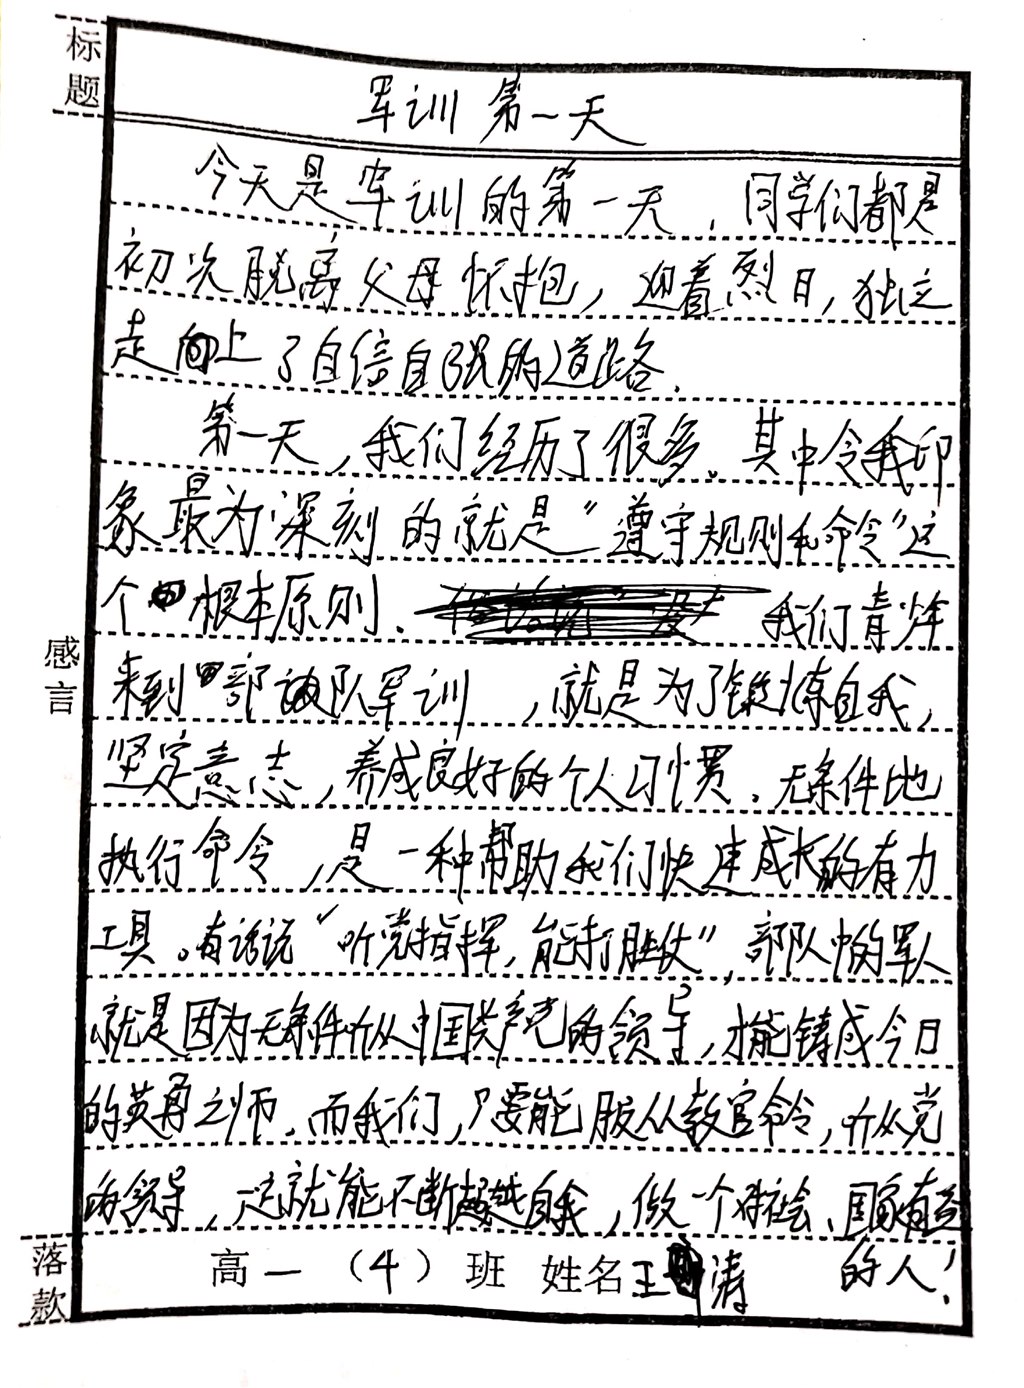 标题
军训第一天
今天是军训的第一天，同学们都是
初次脱离父母怀抱，迎着烈日，独立
走向上了自信自强的道路.
第一天，我们经历了很多。其中令我印
象最为深刻的就是“遵守规则和命令”这
个根本原则. 我们青少年
来到部队军训，就是为了锻炼自我，
坚定意志，养成良好的个人习惯. 无条件地
执行命令，是一种帮助我们快速成长的有力
工具。有话说“听党指挥，能打胜仗”，部队中的军人
就是因为无条件听从中国共产党的领导，才能铸成今日
的英勇之师. 而我们，只要能服从教官命令，听从党
的领导，一定就能不断超越自我，做一个对社会、国家有益
的人！
感言
落款
高一（4）班 姓名王涛